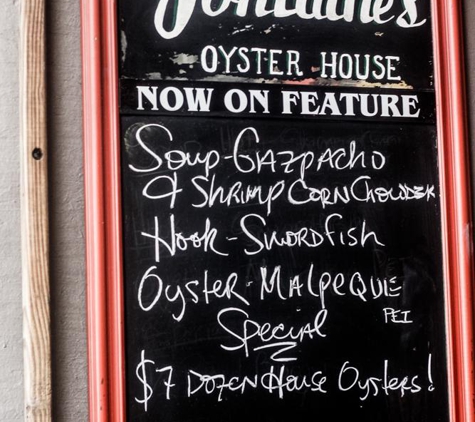 Fontaine's
OYSTER HOUSE
NOW ON FEATURE
Soup-GAZPACHO
& SHRIMP CORN CHOWDER
Hook-SWORDfish
Oyster-MALPEQUE
PEI
Special
$7 DOZEN House Oysters!